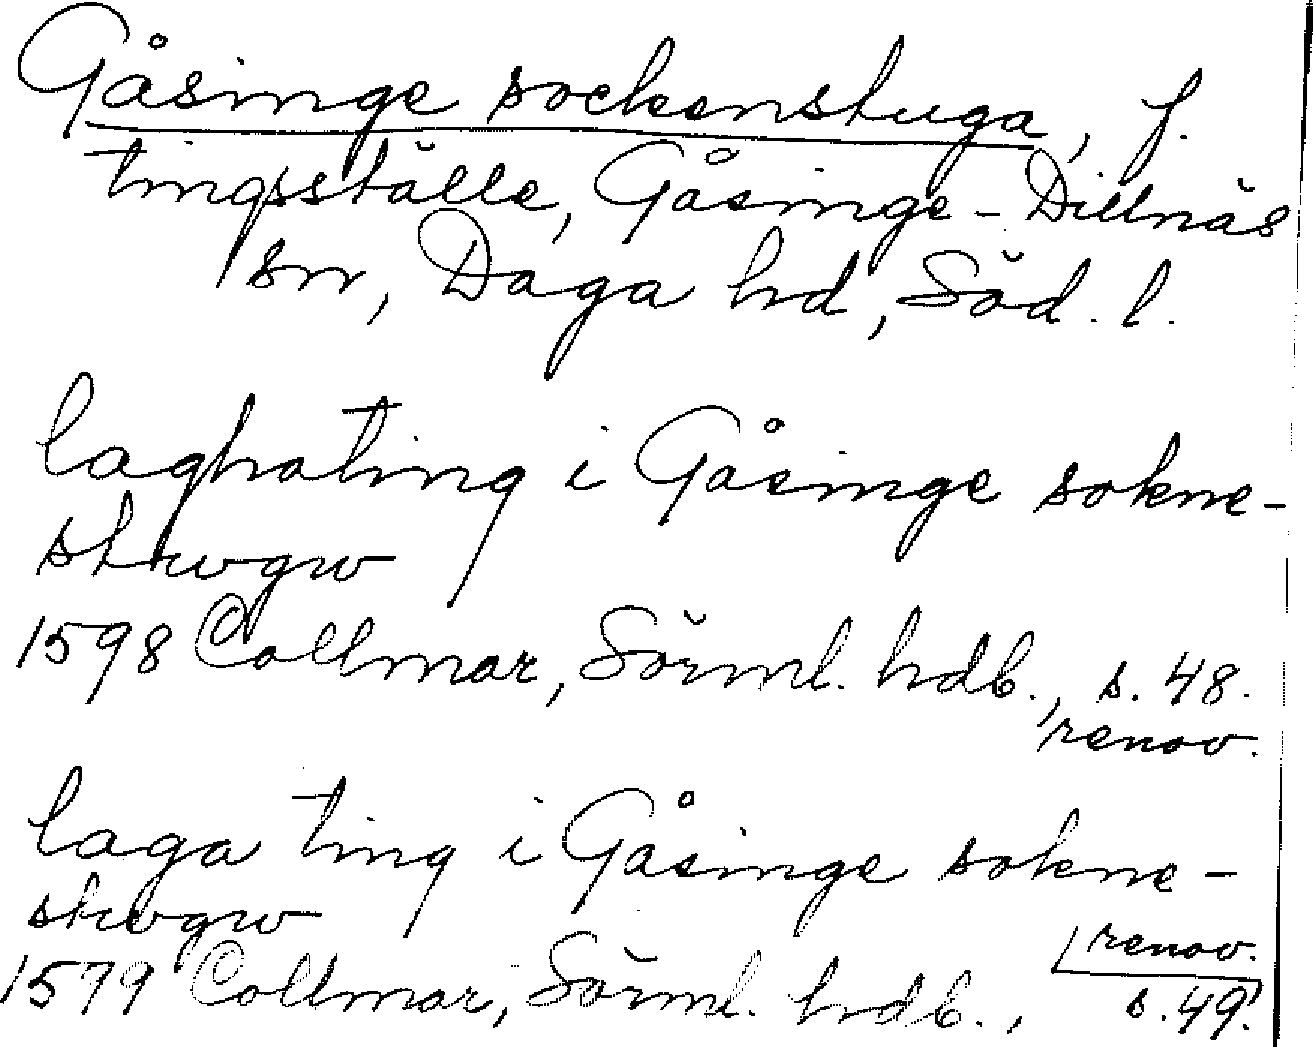 Gåsinge sockenstuga, f.
tingsställe, Gåsinge-Dillnäs
sn, Daga hd, Söd. l.
laghating i Gåsinge sokne-
stwgw
1598 Collmar, Sörml. hdb., s. 48.
renov.
laga ting i Gåsinge sokne-
stwgw
renov.
1579 Collmar, Sörml. hdb., s. 49.